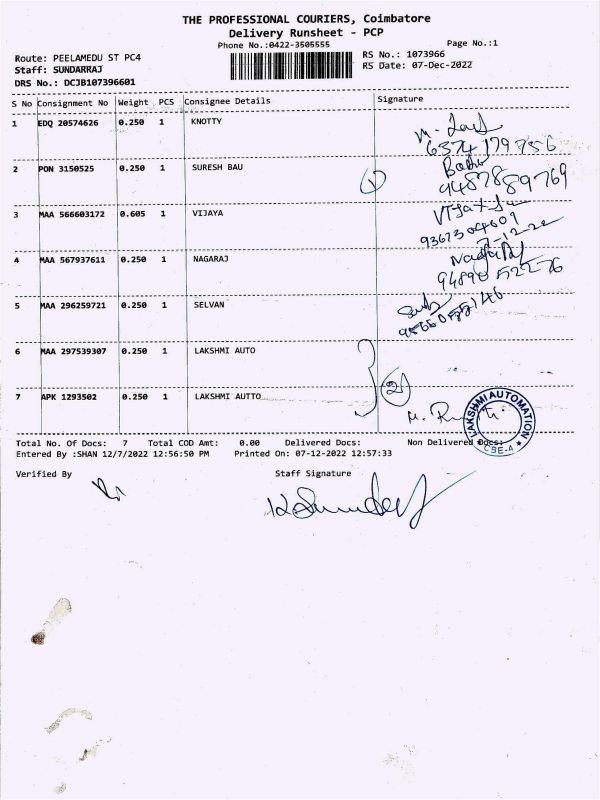 THE PROFESSIONAL COURIERS, Coimbatore
Delivery Runsheet - PCP
Phone No.:0422-3505555
Page No.:1
Route: PEELAMEDU ST PC4
RS No.: 1073966
Staff: SUNDARRAJ
RS Date: 07-Dec-2022
DRS No.: DCJB107396601
S No Consignment No Weight PCS Consignee Details Signature
1 EDQ 20574626 0.250 1 KNOTTY
6374179756
2 PON 3150525 0.250 1 SURESH BAU
Babu
9487889769
1
3 MAA 566603172 0.605 1 VIJAYA
9367304601
7-12-22
4 MAA 567937611 0.250 1 NAGARAJ
Nagaraj
9489052276
5 MAA 296259721 0.250 1 SELVAN
6 MAA 297539307 0.250 1 LAKSHMI AUTO
2
7 APK 1293502 0.250 1 LAKSHMI AUTTO
LAKSHMI AUTOMATION
★ CBE-4 ★
Total No. Of Docs: 7 Total COD Amt: 0.00 Delivered Docs: Non Delivered Docs:
Entered By :SHAN 12/7/2022 12:56:50 PM Printed On: 07-12-2022 12:57:33
Verified By Staff Signature